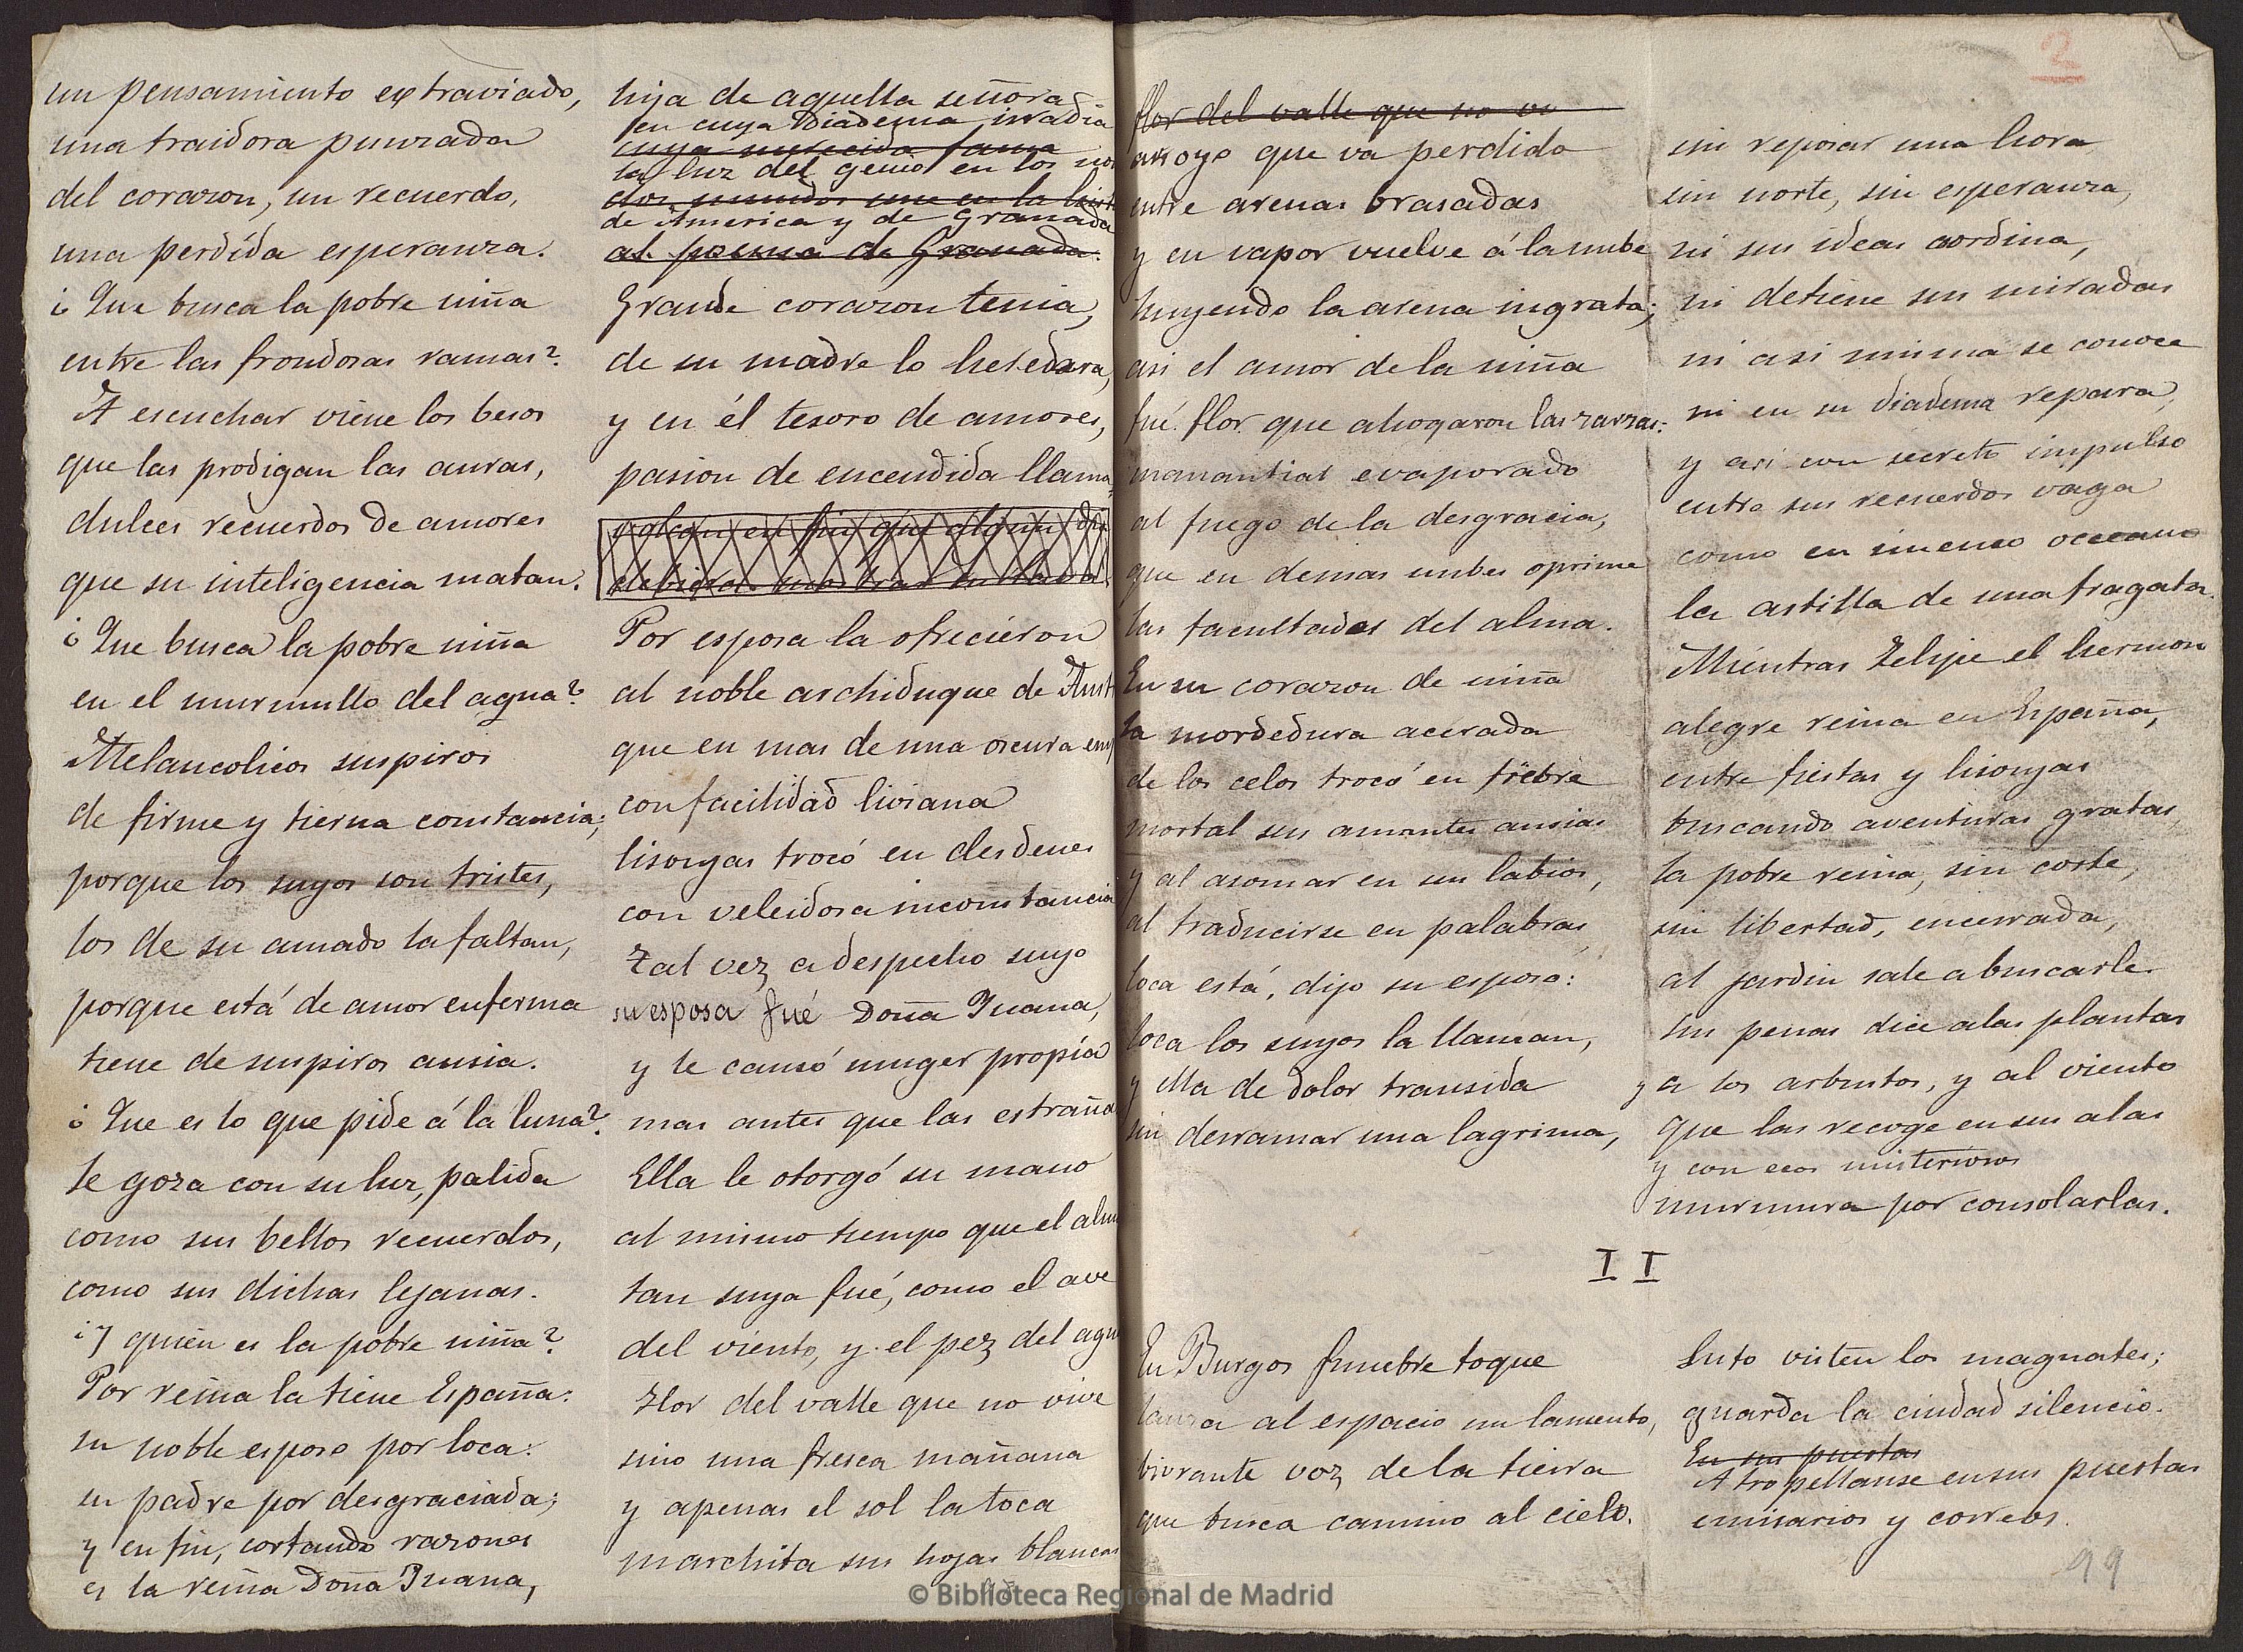 un pensamiento extraviado,
una traidora punzada
del corazon, un recuerdo,
una perdida esperanza.
¿Que busca la pobre niña
entre las frondosas ramas?
A escuchar viene los besos
que las prodigan las auras,
dulces recuerdos de amores
que su inteligencia matan.
¿Que busca la pobre niña
en el murmullo del agua?
Melancolicos suspiros
de firme y tierna constancia;
porque los suyos son tristes,
los de su amado la faltan,
porque está de amor enferma
tiene de suspiros ansia.
¿Que es lo que pide á la luna?
Se goza con su luz, palida
como sus bellos recuerdos,
como sus dichas lejanas.
¿Y quién es la pobre niña?
Por reina la tiene España:
su noble esposo por loca:
su padre por desgraciada;
y en fin, cortando razones
es la reina Doña Juana,
hija de aquella señora
en cuya diadema irradia
cuya merecida fama
la luz del genio en los
dos mundos une en la
de America y de Granada
al poema de Granada.
Grande corazon tenia,
de su madre lo heredara,
y en él tesoro de amores,
pasion de encendida llama,
Por esposa la ofrecieron
al noble archiduque de Aust
que en mas de una oscura em
con facilidad liviana
lisonjas trocó en desdenes
con veleidosa inconstancia
Tal vez a despecho suyo
su esposa fué Doña Juana,
y le cansó muger propia
mas antes que las estraña
Ella le otorgó su mano
al mismo tiempo que el alm
tan suya fué, como el ave
del viento, y el pez del agu
Flor del valle que no vive
sino una fresca mañana
y apenas el sol la toca
marchita sus hojas blancas
flor del valle que no vi
arroyo que va perdido
entre arenas brasadas
y en vapor vuelve á la nube
huyendo la arena ingrata;
asi el amor de la niña
fué flor que ahogaron las zarzas:
manantial evaporado
al fuego de la desgracia,
que en densas nubes oprime
las facultades del alma.
En su corazon de niña
la mordedura acerada
de los celos trocó en fiebre
mortal sus amantes ansias
y al asomar en sus labios,
al traducirse en palabras,
loca está, dijo su esposo:
loca los suyos la llaman,
y ella de dolor transida
sin derramar una lagrima,
2
sin reposar una hora
sin norte, sin esperanza,
ni sus ideas cordina,
ni detiene sus miradas
ni asi misma se conoce
ni en su diadema repara,
y asi con secreto impulso
entre sus recuerdos vaga
como en inmenso occeano
la astilla de una fragata.
Mientras Felipe el hermoso
alegre reina en España,
entre fiestas y lisonjas
buscando aventuras gratas,
la pobre reina, sin corte,
sin libertad, encerrada,
al jardin sale a buscarle.
Sus penas dice a las plantas
y a los arbustos, y al viento
que las recoge en sus alas
y con ecos misteriosos
murmura por consolarlas.
II
En Burgos funebre toque
lanza al espacio un lamento,
bivrante voz de la tierra
que busca camino al cielo.
Luto visten los magnates;
guarda la ciudad silencio.
En sus puestas
Atropellanse en sus puertas
emisarios y correos.
99
© Biblioteca Regional de Madrid